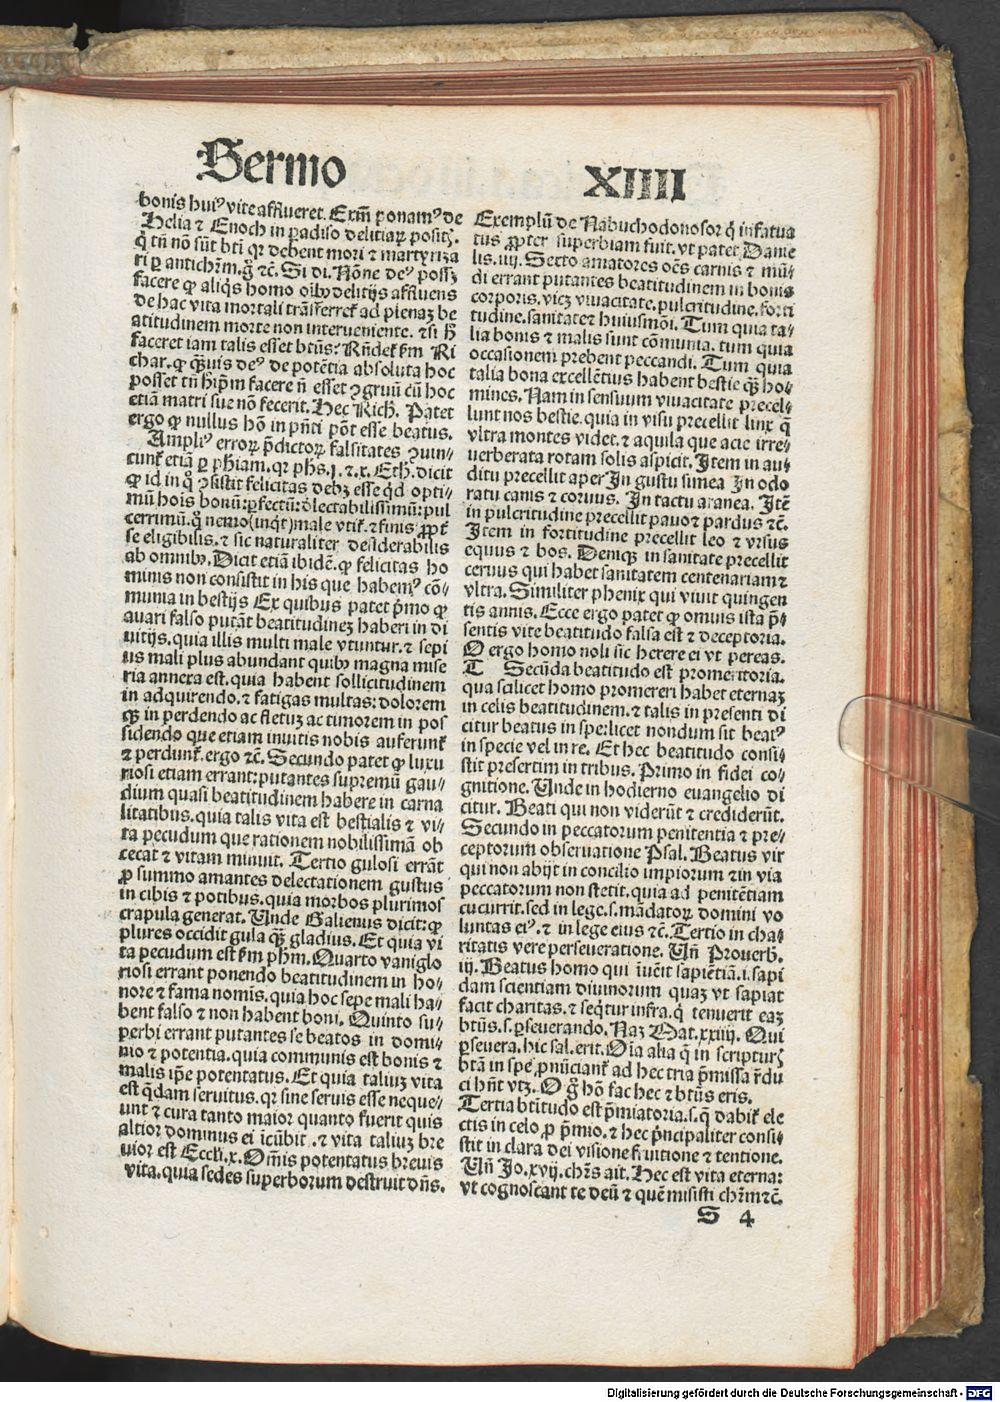 Sermo
XIIII
bonis huiꝰ vite afflueret. Exm̄ ponamꝰ de
Helia ⁊ Enoch in paradiso delitiaꝝ positꝭ.
q̇ tn̄ nō sūt bti̅ qꝛ debent mori ⁊ martyriza
ri ꝑ antichꝛm̄. g̊ ⁊c̄. Si di. Nōne deꝰ possꝫ
facere ꝙ aliq̇s homo oībꝰ delitijs affluens
de hac vita mortali trāsferret᷑ ad plenaꝫ be
atitudinem morte non interueniente. ⁊ si h̊
faceret iam talis esset btūs? Rn̄det᷑ ẜm Ri
char. ꝙ qᷓꝫuis deꝰ de potētia absoluta hoc
posset tn̄ hꝛ̄pm facere n̄ esset ꝯgruū cū hoc
etiā matri sue nō fecerit. Hec Rich̄. Patet
ergo ꝙ nullus hō in pn̄ti pōt esse beatus.
Ampliꝰ erroꝝ p̄dictoꝝ falsitates ꝯuin/
cunt᷑ etiā ꝑ ph̄iam. qꝛ ph̄s. j. ⁊. x. Eth̄. dicit
ꝙ id in qͦ ꝯsistit felicitas debꝫ esse qͥd opti/
mū hoīs bonū: ꝑfectū: d̓lectabilissimū: pul
cerrimū. qͦ nemo (inqͥt) male vtit᷑. ⁊ finis ꝓpt̓
se eligibilis. ⁊ sic naturaliter desiderabilis
ab omnibꝰ. Dicit etiā ibidē. ꝙ felicitas ho
minis non consistit in his que habemꝰ cō/
munia in bestijs Ex quibus patet p̄mo ꝙ
auari falso putāt beatitudineꝫ haberi in di
uitijs. quia illis multi male vtuntur. ⁊ sepi
us mali plus abundant quibꝰ magna mise
ria annexa est. quia habent sollicitudinem
in adquirendo. ⁊ fatigas multas: dolorem
qꝫ in perdendo ac fletuꝫ ac timorem in pos
sidendo que etiam inuitis nobis auferunt᷑
⁊ perdunt᷑. ergo ⁊c̄. Secundo patet ꝙ luxu
riosi etiam errant: putantes supremū gau/
dium quasi beatitudinem habere in carna
litatibus. quia talis vita est bestialis ⁊ vi/
ta pecudum que rationem nobilissimā ob
cecat ⁊ vitam minuit. Tertio gulosi errāt
ꝓ summo amantes delectationem gustus
in cibis ⁊ potibus. quia morbos plurimos
crapula generat. Unde Galienus dicit: ꝙ
plures occidit gula qᷓꝫ gladius. Et quia vi
ta pecudum est ẜm ph̄m. Quarto vaniglo
riosi errant ponendo beatitudinem in ho/
nore ⁊ fama nomīs. quia hoc sepe mali ha/
bent falso ⁊ non habent boni. Quinto su/
perbi errant putantes se beatos in domi/
nio ⁊ potentia. quia communis est bonis ⁊
malis ip̄e potentatus. Et quia taliuꝫ vita
est q̄dam seruitus. qꝛ sine seruis esse neque/
unt ⁊ cura tanto maior quanto fuerit quis
altior dominus ei īcūbit. ⁊ vita taliuꝫ bre
uior est Eccli. x. Om̄is potentatus breuis
vita. quia sedes superborum destruit dn̄s.
Exemplū de Nabuchodonosor q̇ infatua
tus ꝓpter superbiam fuit. vt patet Danie
lis. iiij. Sexto amatores oēs carnis ⁊ mū/
di errant putantes beatitudinem in bonis
corporis. vicꝫ viuacitate. pulcritudine. forti
tudine. sanitate ⁊ huiusmōi. Tum quia ta/
lia bonis ⁊ malis sunt cōmunia. tum quia
occasionem prebent peccandi. Tum quia
talia bona excellētius habent bestie qᷓꝫ ho/
mines. Nam in sensuum viuacitate precel/
lunt nos bestie. quia in visu precellit linx q̄
vltra montes videt. ⁊ aquila que acie irre/
uerberata rotam solis aspicit. Item in au/
ditu precellit aper In gustu simea In odo
ratu canis ⁊ coruus. In tactu aranea. Itē
in pulcritudine precellit pauo ⁊ pardus ⁊c̄.
Item in fortitudine precellit leo ⁊ vrsus
equus ⁊ bos. Deniqꝫ in sanitate precellit
ceruus qui habet sanitatem centenariam ⁊
vltra. Similiter phenix qui viuit quingen
tis annis. Ecce ergo patet ꝙ omnis ista p̄/
sentis vite beatitudo falsa est ⁊ deceptoria.
O ergo homo noli sic herere ei vt pereas.
T Secūda beatitudo est promeritoria.
qua scilicet homo promereri habet eternaꝫ
in celis beatitudinem. ⁊ talis in presenti di
citur beatus in spe: licet nondum sit beatꝰ
in specie vel in re. Et hec beatitudo consi/
stit presertim in tribus. Primo in fidei co/
gnitione. Unde in hodierno euangelio di
citur. Beati qui non viderūt ⁊ crediderūt.
Secundo in peccatorum penitentia ⁊ pre/
ceptorum obseruatione Psal. Beatus vir
qui non abijt in concilio impiorum ⁊ in via
peccatorum non stetit. quia ad penitētiam
cucurrit. sed in lege. s. mādatoꝝ domini vo
luntas eiꝰ. ⁊ in lege eius ⁊c̄. Tertio in cha/
ritatis vere perseueratione. Un̄ Prouerb̄.
iij. Beatus homo qui īuēit sapiētiā. i. sapi
dam scientiam diuinorum quaꝫ vt sapiat
facit charitas. ⁊ seqͥtur infra. q̇ tenuerit eaꝫ
btūs. s. ꝑseuerando. Naꝫ Mat. xxiiij. Qui
ꝑseuera. hic sal. erit. Oīa alia q̄ in scripturꝭ
btā in spe ꝓnūciant᷑ ad hec tria p̄missa r̄du
ci hn̄t vtꝫ. O g̊ hō fac hec ⁊ btūs eris.
Tertia btītudo est p̄miatoria. s. q̄ dabit᷑ ele
ctis in celo ꝓ p̄mio. ⁊ hec pͥncipaliter consi/
stit in clara dei visione fruitione ⁊ tentione.
Un̄ Jo. xvij. chꝛ̄s ait. Hec est vita eterna:
vt cognoscant te deū ⁊ quē misisti chꝛ̄m ⁊c̄.
S 4
Digitalisierung gefördert durch die Deutsche Forschungsgemeinschaft - DFG